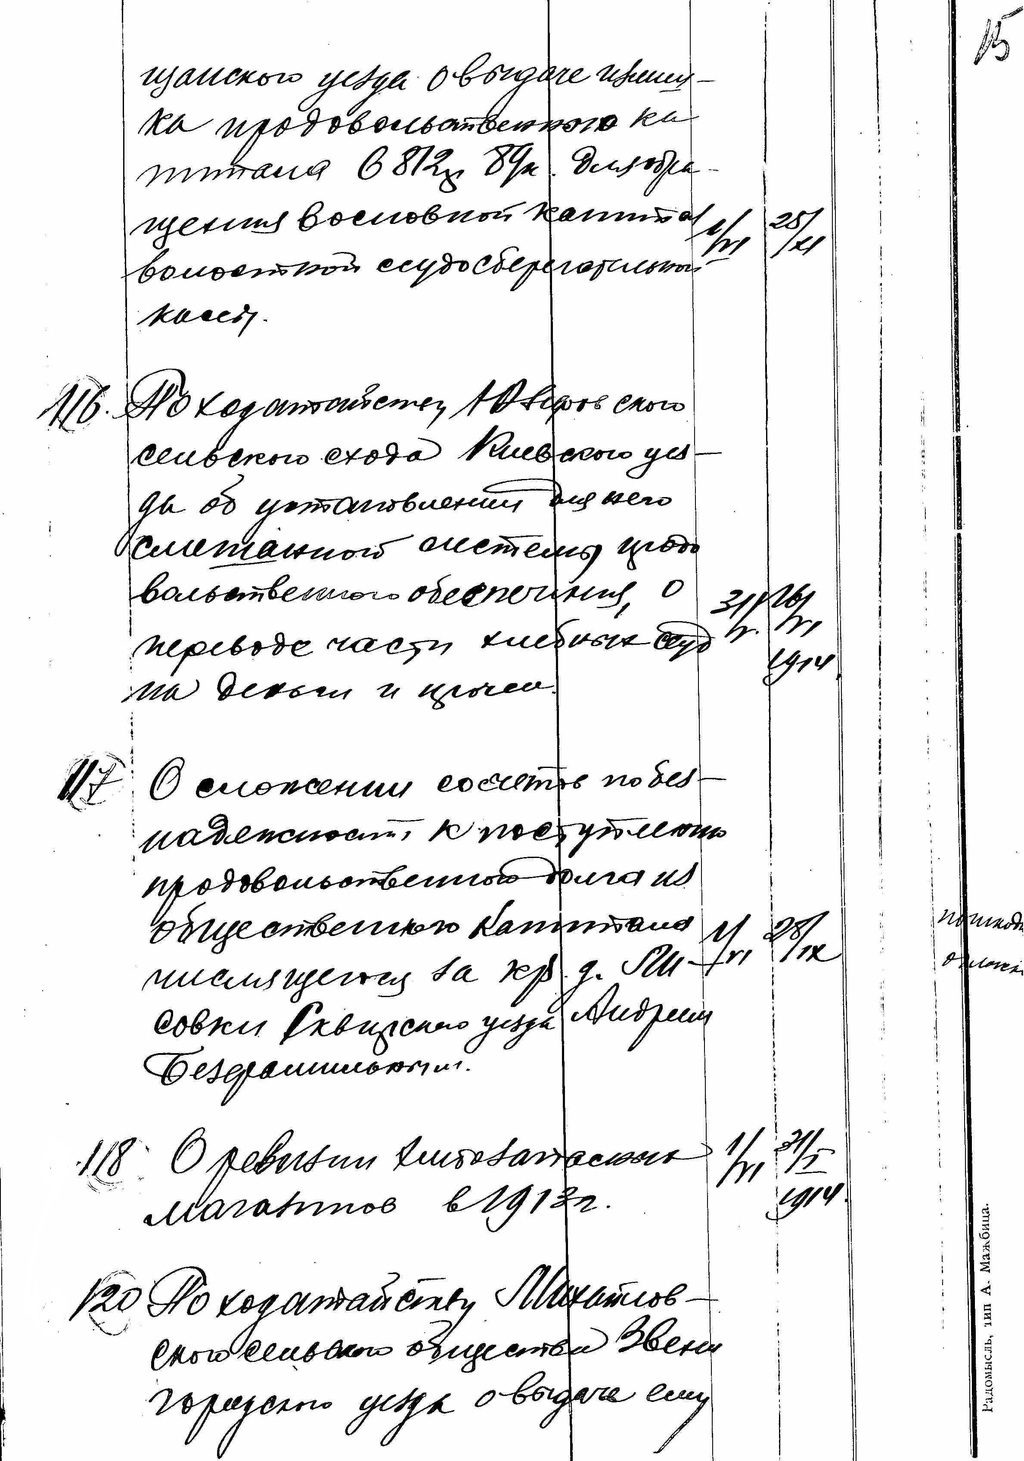 15
щанского уезда о выдаче излиш-
ка продовольственного ка
питала в 812 р 89 к. для обра-
щения в основной капитал 1/VI 25/XI
волостной ссудосберегательной
кассы.
116. По ходатайству
сельского схода Киевского уез-
да об установлении для него
смешанной системы продо
вольственного обеспечения, о 31/V. 26/VI
переводе части хлебных ссуд 1914
на деньги и прочее.
117 О сложении со счетов по без-
надежности к поступлению
продовольственного долга из
общественного капитала 1/VI 28/IX
числящегося за кр. д. Ли-
совки Сквирского уезда Андреем
Безфамильным.
118 О ревизии хлебозапасных 1/VI 31/I
магазинов в 1913 г. 1914
120 По ходатайству Михайлов-
ского сельского общества Звени
городского уезда о выдаче ему
Радомысль, тип А. Мажбица.